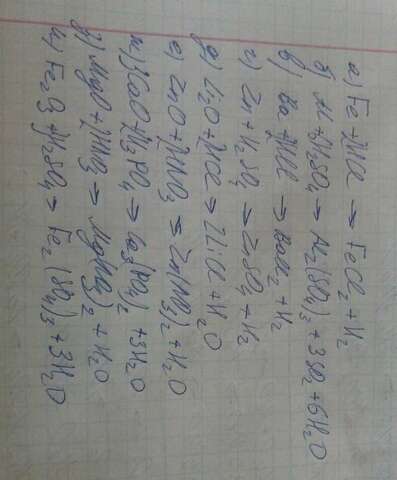 а) Fe + 2HCl → FeCl₂ + H₂
б) Al + 6H₂SO₄ → Al₂(SO₄)₃ + 3SO₂ + 6H₂O
в) Ba + 2HCl → BaCl₂ + H₂
г) Zn + H₂SO₄ → ZnSO₄ + H₂
д) Li₂O + 2HCl → 2LiCl + H₂O
е) ZnO + 2HNO₃ → Zn(NO₃)₂ + H₂O
ж) 3CaO + 2H₃PO₄ → Ca₃(PO₄)₂ + 3H₂O
з) MgO + 2HNO₃ → Mg(NO₃)₂ + H₂O
и) Fe₂O₃ + 3H₂SO₄ → Fe₂(SO₄)₃ + 3H₂O